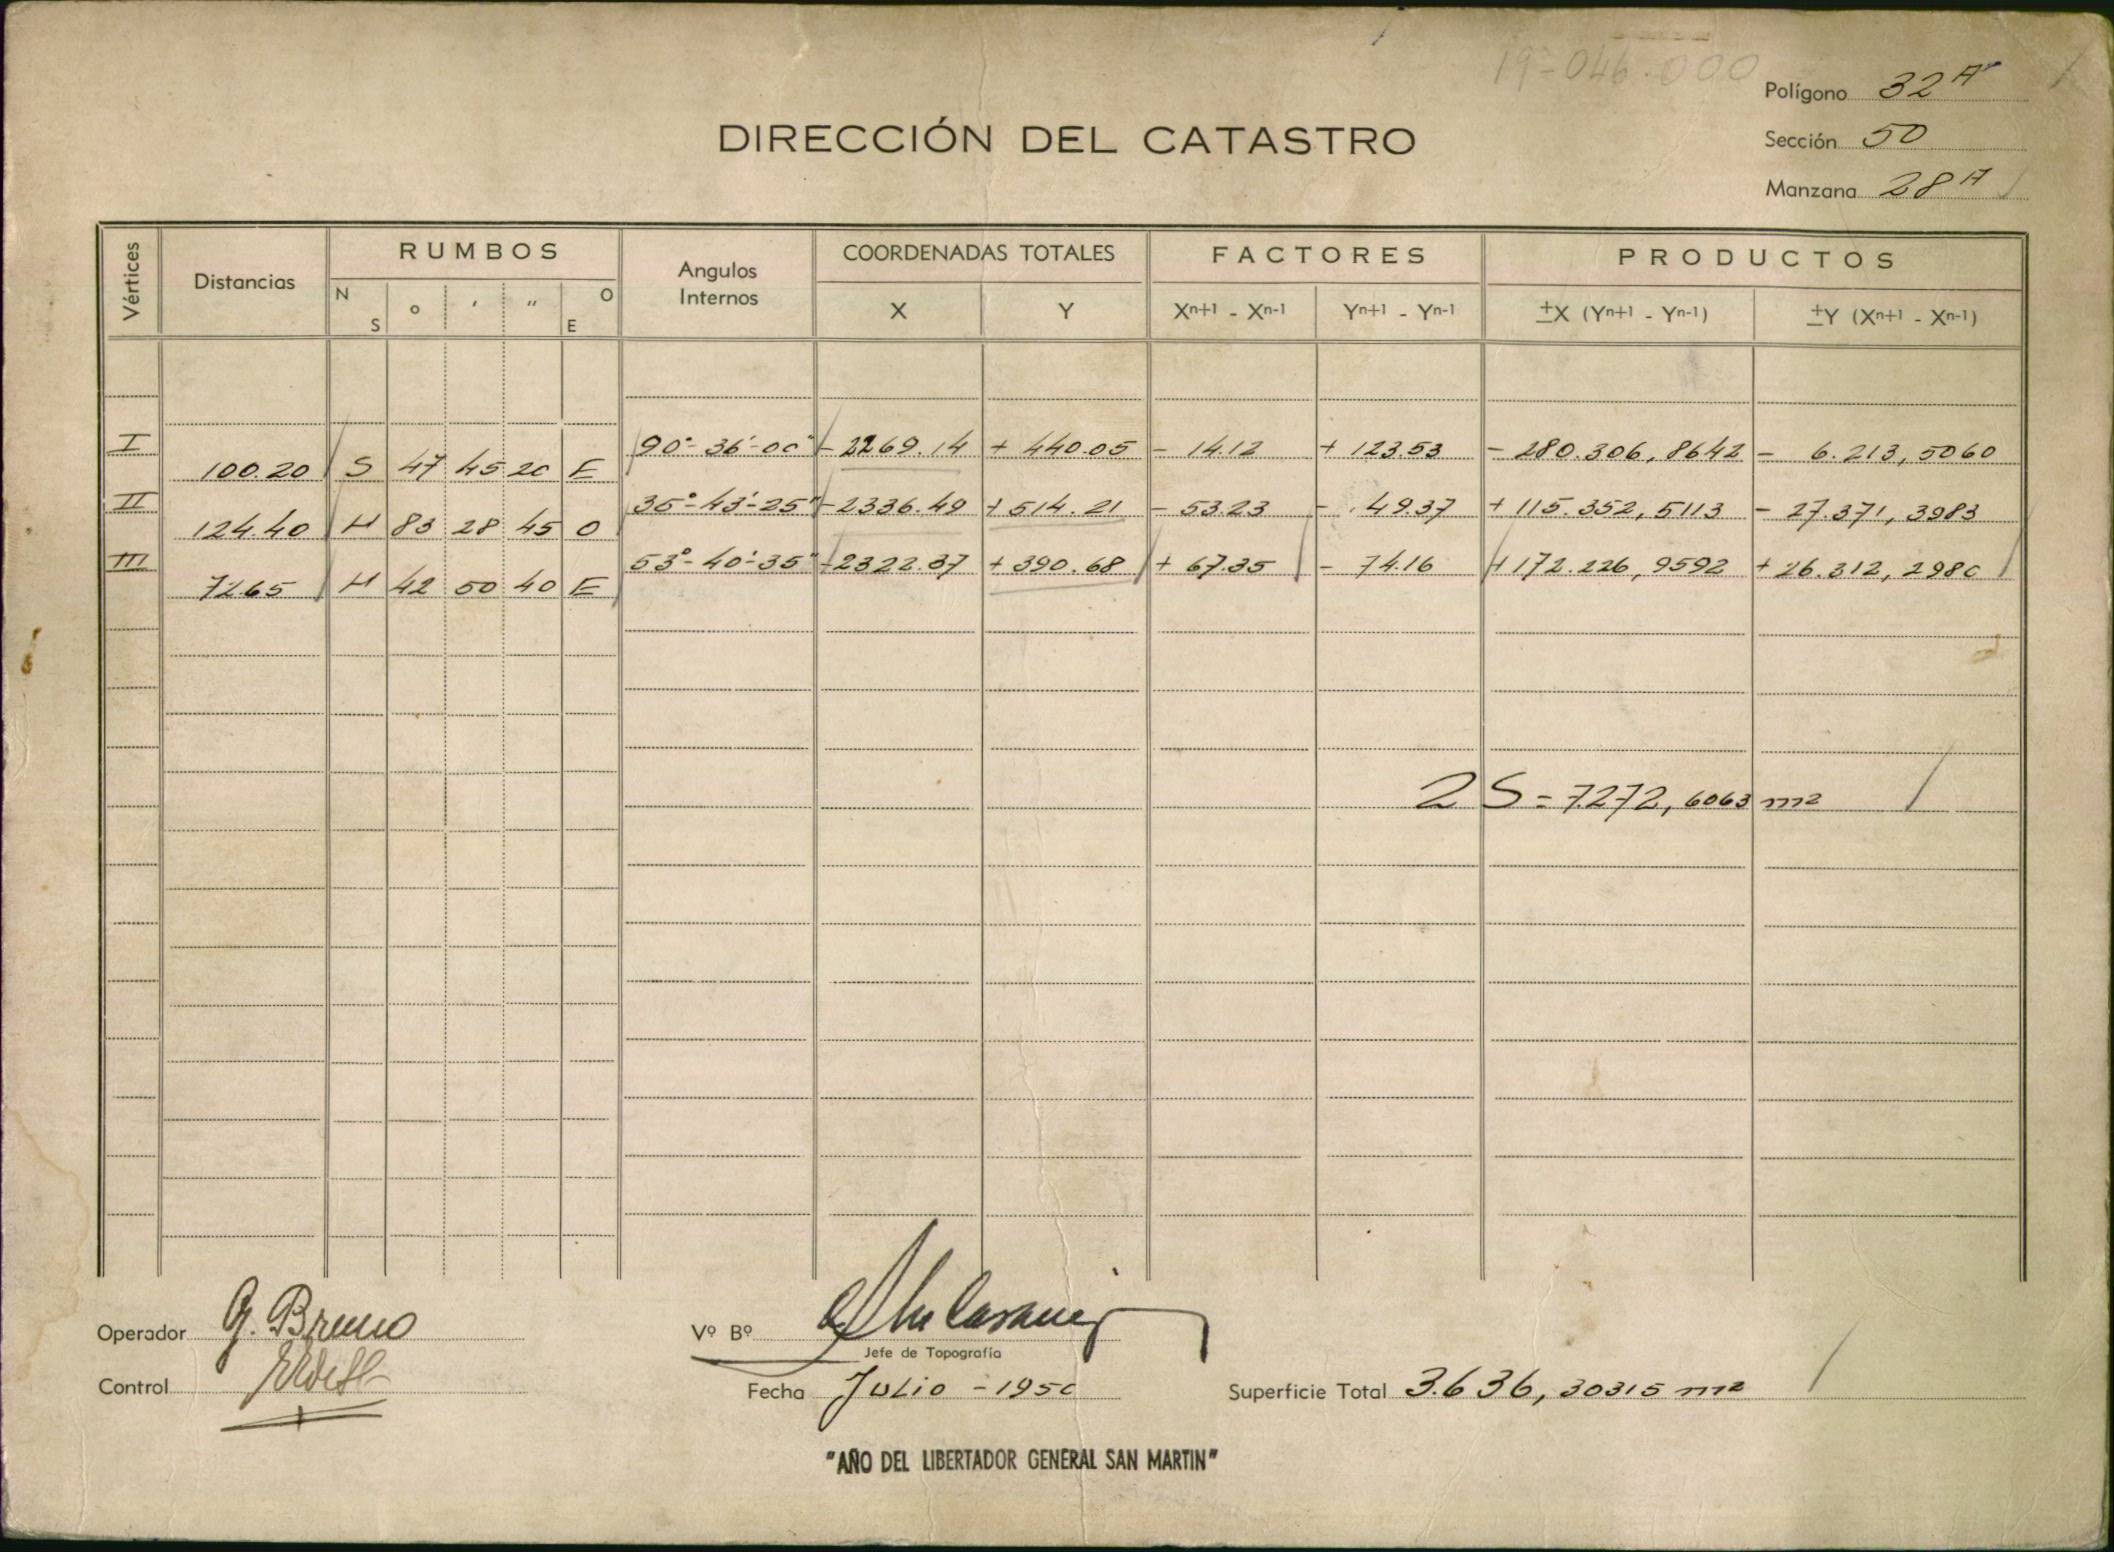 19-046-000
Polígono 32 A
DIRECCIÓN DEL CATASTRO
Sección 50
Manzana 28 A
Vértices
Distancias
RUMBOS
N S ° ' " O E
Angulos Internos
COORDENADAS TOTALES
X Y
FACTORES
Xn+1 - Xn-1 Yn+1 - Yn-1
PRODUCTOS
±X (Yn+1 - Yn-1) ±Y (Xn+1 - Xn-1)
I 90°-36'-00" -2269.14 + 440.05 - 14.12 + 123.53 - 280.306,8642 - 6.213,5060
100.20 S 47 45 20 E
II 35°-43'-25" -2336.49 + 514.21 - 53.23 - 49.37 + 115.352,5113 - 27.371,3983
124.40 N 83 28 45 O
III 53°-40'-35" -2322.37 + 390.68 + 67.35 - 74.16 + 172.226,9592 + 26.312,2980
72.65 N 42 50 40 E
2 S = 7.272,6063 m2
Operador G. Bruno
Control
Vº Bº
Jefe de Topografía
Fecha Julio - 1950
Superficie Total 3.636,30315 m2
"AÑO DEL LIBERTADOR GENERAL SAN MARTIN"